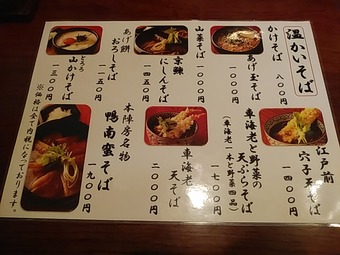 温かいそば
かけそば
八〇〇円
あげ玉そば
一〇〇〇円
山菜そば
一〇〇〇円
京鰊
にしんそば
一四五〇円
あげ餅
おろしそば
一一五〇円
とろろ
山かけそば
一三〇〇円
※価格は全て内税になっております。
江戸前
穴子天そば
一四〇〇円
車海老と野菜の
天ぷらそば
(車海老一本と野菜四品)
一七〇〇円
車海老
天そば
二〇〇〇円
本陣房名物
鴨南蛮そば
一九〇〇円